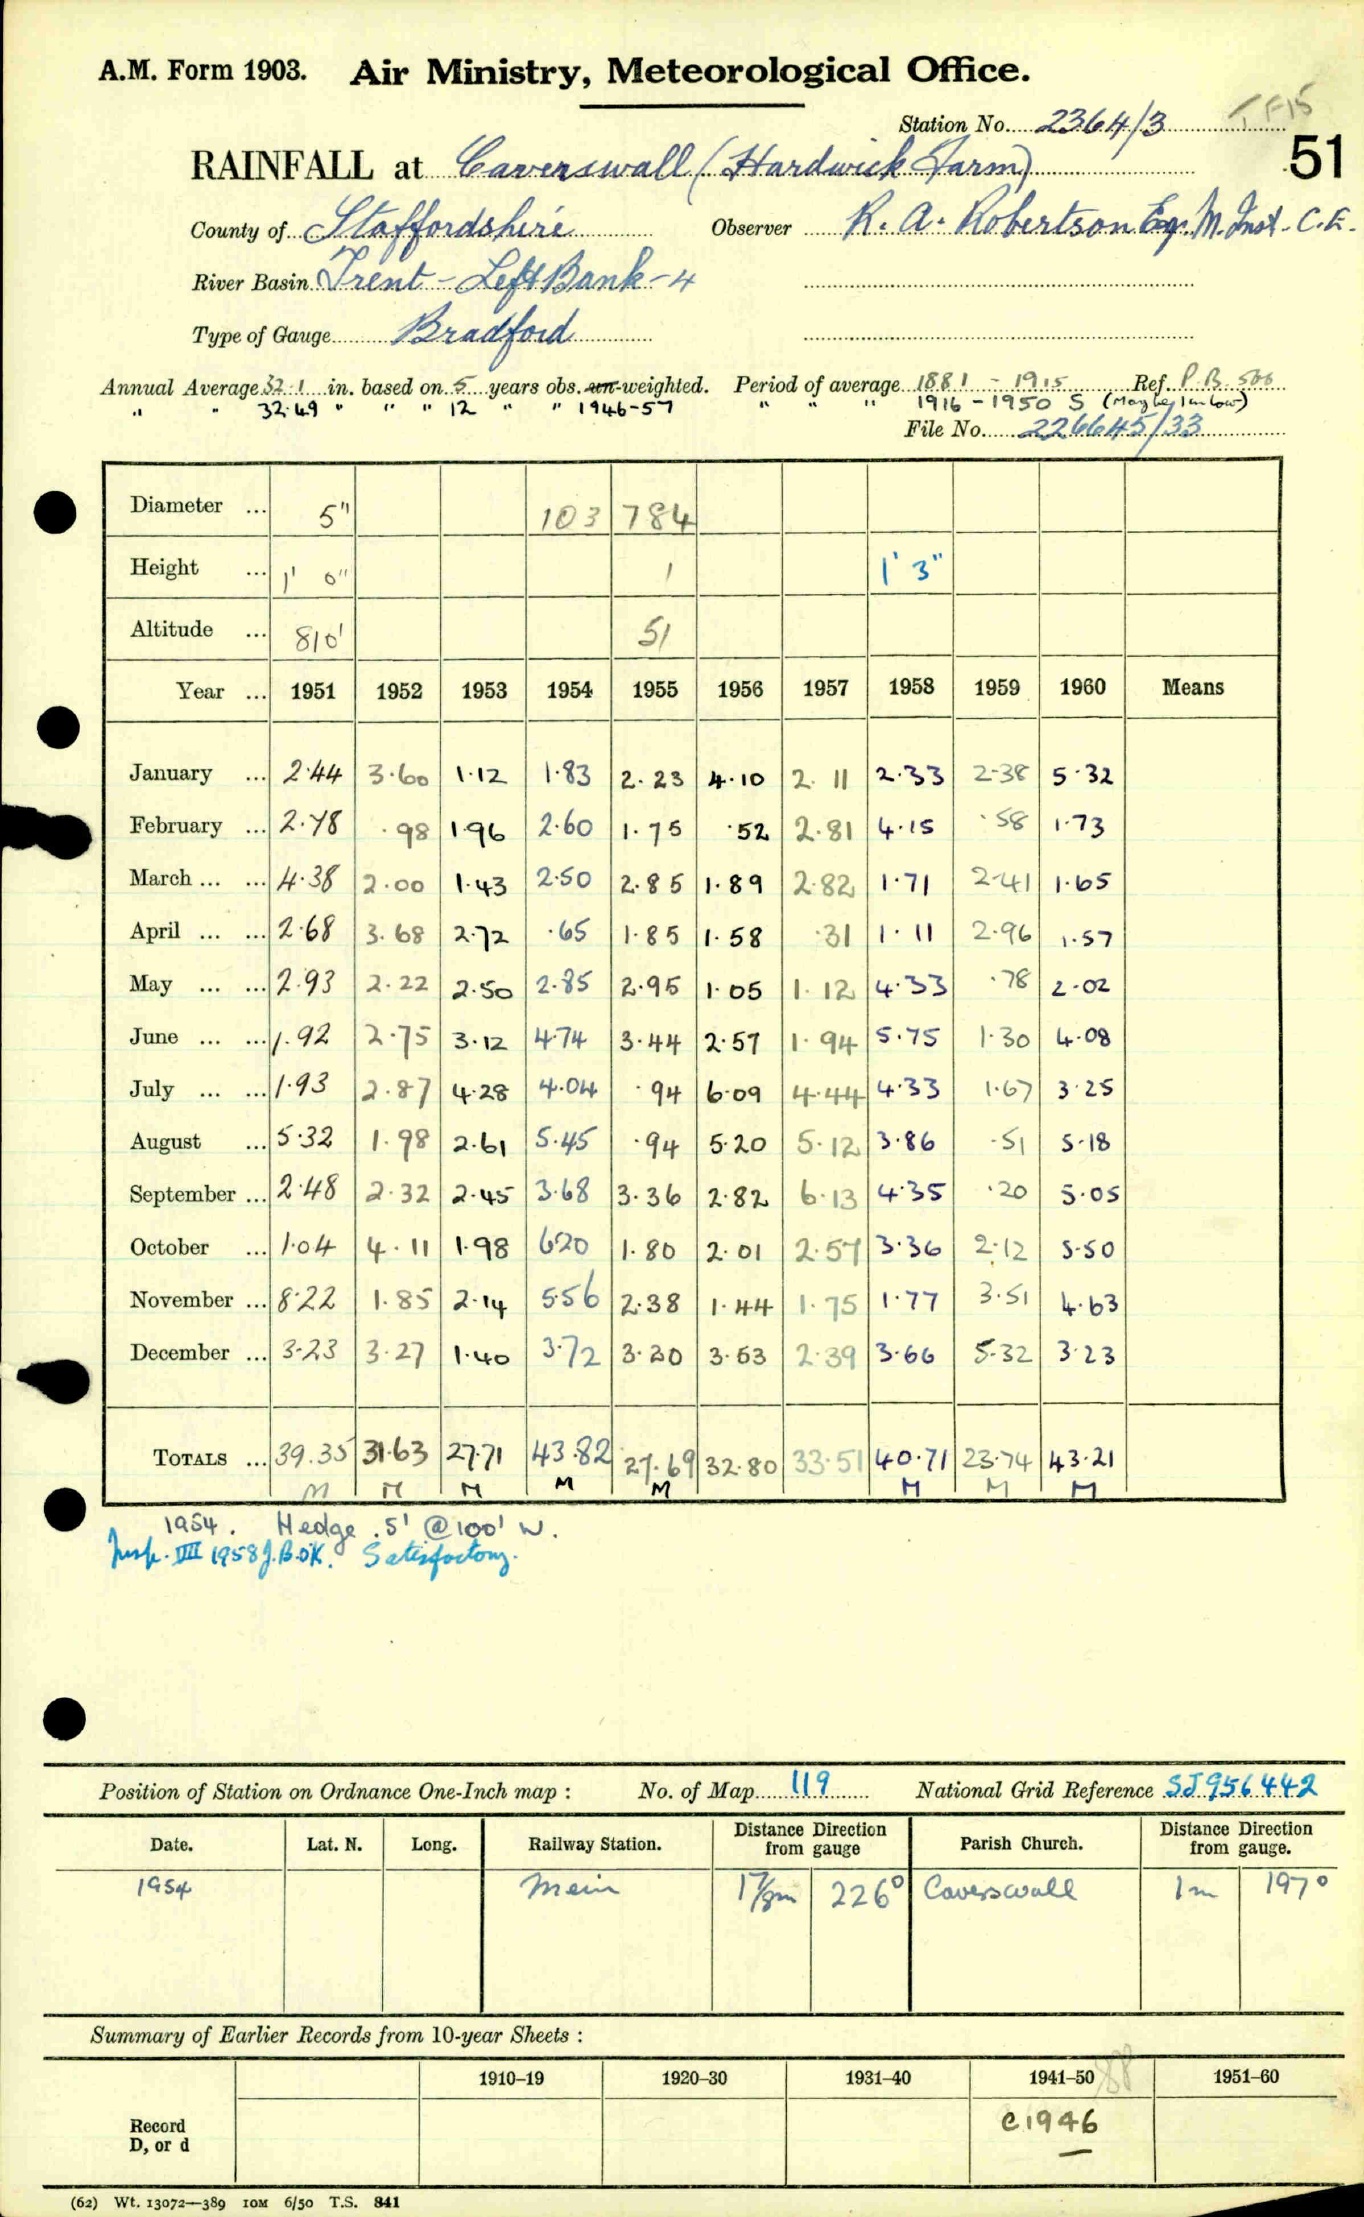 A.M. Form 1903. Air Ministry, Meteorological Office.
Station No. 2364/3 TF15
51
RAINFALL at Caverswall (Hardwick Farm)
County of Staffordshire Observer R. A. Robertson Esq. M. Inst. C.E.
River Basin Trent - Left Bank - 4
Type of Gauge Bradford
Annual Average 32.1 in. based on 5 years obs. un-weighted. Period of average 1881 - 1915 Ref. P.B. 506
" " 32.49 " " " 12 " " 1946-57 " " " 1916 - 1950 S (May be 1 in low)
File No. 226645/33
Diameter ... 5" 103 784
Height ... 1' 0" 1 1' 3"
Altitude ... 810' 51
Year ... 1951 1952 1953 1954 1955 1956 1957 1958 1959 1960 Means
January ... 2.44 3.60 1.12 1.83 2.23 4.10 2.11 2.33 2.38 5.32
February ... 2.78 .98 1.96 2.60 1.75 .52 2.81 4.15 .58 1.73
March ... ... 4.38 2.00 1.43 2.50 2.85 1.89 2.82 1.71 2.41 1.65
April ... ... 2.68 3.68 2.72 .65 1.85 1.58 .31 1.11 2.96 1.57
May ... ... 2.93 2.22 2.50 2.85 2.95 1.05 1.12 4.33 .78 2.02
June ... ... 1.92 2.75 3.12 4.74 3.44 2.57 1.94 5.75 1.30 4.08
July ... ... 1.93 2.87 4.28 4.04 .94 6.09 4.44 4.33 1.67 3.25
August ... 5.32 1.98 2.61 5.45 .94 5.20 5.12 3.86 .51 5.18
September ... 2.48 2.32 2.45 3.68 3.36 2.82 6.13 4.35 .20 5.05
October ... 1.04 4.11 1.98 6.20 1.80 2.01 2.57 3.36 2.12 5.50
November ... 8.22 1.85 2.14 5.56 2.38 1.44 1.75 1.77 3.51 4.63
December ... 3.23 3.27 1.40 3.72 3.20 3.53 2.39 3.66 5.32 3.23
TOTALS ... 39.35 31.63 27.71 43.82 27.69 32.80 33.51 40.71 23.74 43.21
M M M M M M M M
1954. Hedge .5' @ 100' W.
Insp. VIII 1958 J.B. OK. Satisfactory.
Position of Station on Ordnance One-Inch map : No. of Map 119 National Grid Reference SJ 956442
Date. Lat. N. Long. Railway Station. Distance Direction from gauge Parish Church. Distance Direction from gauge.
1954 Meir 1 7/8m 226° Caverswall 1m 197°
Summary of Earlier Records from 10-year Sheets :
1910–19 1920–30 1931–40 1941–50 1951–60
88
Record D, or d c1946
(62) Wt. 13072—389 10M 6/50 T.S. 841